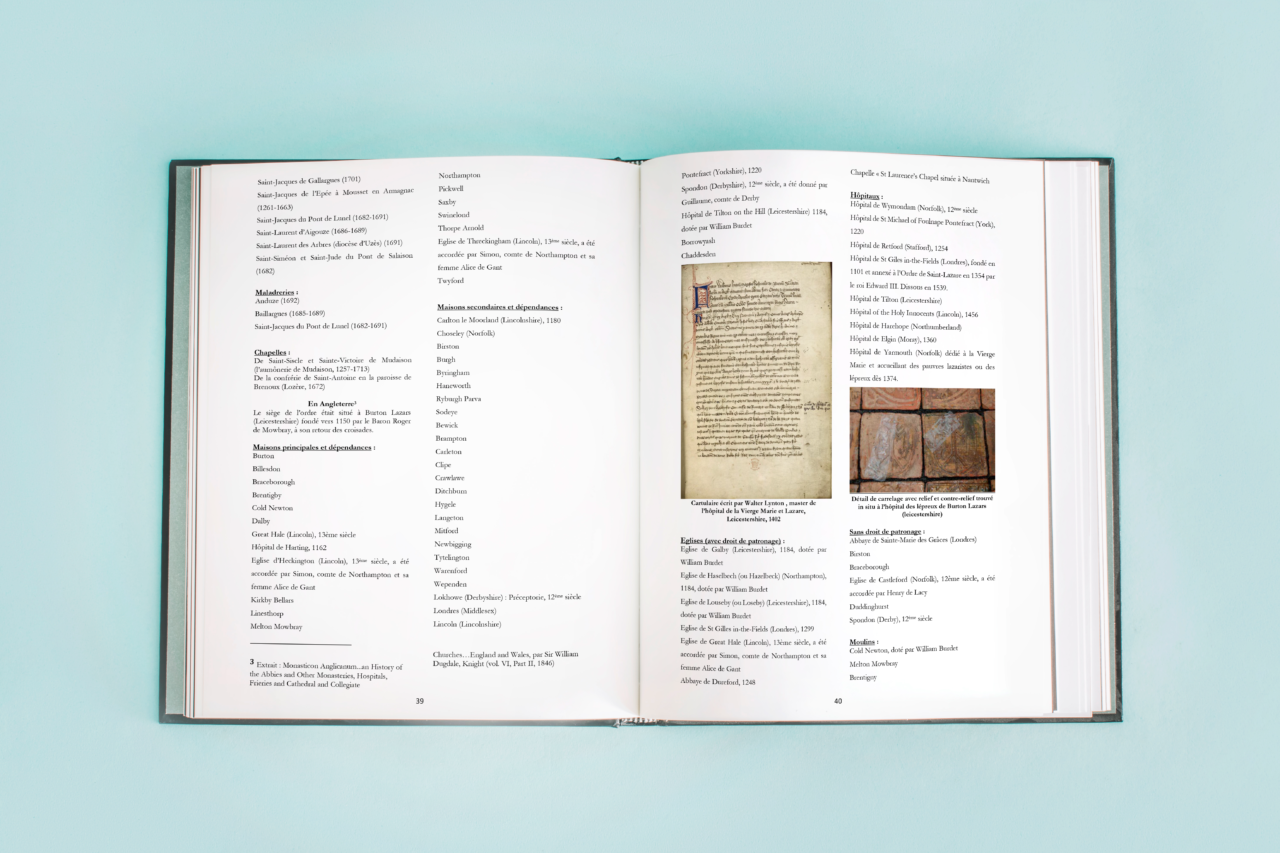 Saint-Jacques de Gallargues (1701)
Saint-Jacques de l'Epée à Mousset en Armagnac
(1261-1663)
Saint-Jacques du Pont de Lunel (1682-1691)
Saint-Laurent d'Aigouze (1686-1689)
Saint-Laurent des Arbres (diocèse d'Uzès) (1691)
Saint-Siméon et Saint-Jude du Pont de Salaison
(1682)
Maladreries :
Anduze (1692)
Baillargues (1685-1689)
Saint-Jacques du Pont de Lunel (1682-1691)
Chapelles :
De Saint-Siscle et Sainte-Victoire de Mudaison
(l'aumônerie de Mudaison, 1257-1713)
De la confrérie de Saint-Antoine en la paroisse de
Brenoux (Lozère, 1672)
En Angleterre³
Le siège de l'ordre était situé à Burton Lazars
(Leicestershire) fondé vers 1150 par le Baron Roger
de Mowbray, à son retour des croisades.
Maisons principales et dépendances :
Burton
Billesdon
Braceborough
Brentigby
Cold Newton
Dalby
Great Hale (Lincoln), 13ème siècle
Hôpital de Harting, 1162
Eglise d'Heckington (Lincoln), 13ème siècle, a été
accordée par Simon, comte de Northampton et sa
femme Alice de Gant
Kirkby Bellars
Linesthorp
Melton Mowbray
3 Extrait : Monasticon Anglicanum..an History of
the Abbies and Other Monasteries, Hospitals,
Frieries and Cathedral and Collegiate
Northampton
Pickwell
Saxby
Swineloud
Thorpe Arnold
Eglise de Threckingham (Lincoln), 13ème siècle, a été
accordée par Simon, comte de Northampton et sa
femme Alice de Gant
Twyford
Maisons secondaires et dépendances :
Carlton le Moorland (Lincolnshire), 1180
Choseley (Norfolk)
Birston
Burgh
Byringham
Haneworth
Ryburgh Parva
Sodeye
Bewick
Brampton
Carleton
Clipe
Crawlawe
Ditchburn
Hygele
Langeton
Mitford
Newbigging
Tytelington
Warenford
Wependen
Lokhowe (Derbyshire) : Préceptorie, 12ème siècle
Londres (Middlesex)
Lincoln (Lincolnshire)
Churches…England and Wales, par Sir William
Dugdale, Knight (vol. VI, Part II, 1846)
39
Pontefract (Yorkshire), 1220
Spondon (Derbyshire), 12ème siècle, a été donné par
Guillaume, comte de Derby
Hôpital de Tilton on the Hill (Leicestershire) 1184,
dotée par William Burdet
Borrowyash
Chaddesden
Cartulaire écrit par Walter Lynton , master de
l'hôpital de la Vierge Marie et Lazare,
Leicestershire, 1402
Eglises (avec droit de patronage) :
Eglise de Galby (Leicestershire), 1184, dotée par
William Burdet
Eglise de Haselbech (ou Hazelbeck) (Northampton),
1184, dotée par William Burdet
Eglise de Louseby (ou Loseby) (Leicestershire), 1184,
dotée par William Burdet
Eglise de St Gilles in-the-Fields (Londres), 1299
Eglise de Great Hale (Lincoln), 13ème siècle, a été
accordée par Simon, comte de Northampton et sa
femme Alice de Gant
Abbaye de Dureford, 1248
Chapelle « St Laurence's Chapel située à Nantwich
Hôpitaux :
Hôpital de Wymondam (Norfolk), 12ème siècle
Hôpital de St Michael of Foulsnape Pontefract (York),
1220
Hôpital de Retford (Stafford), 1254
Hôpital de St Giles in-the-Fields (Londres), fondé en
1101 et annexé à l'Ordre de Saint-Lazare en 1354 par
le roi Edward III. Dissous en 1539.
Hôpital de Tilton (Leicestershire)
Hôpital of the Holy Innocents (Lincoln), 1456
Hôpital de Harehope (Northumberland)
Hôpital de Elgin (Moray), 1360
Hôpital de Yarmouth (Norfolk) dédié à la Vierge
Marie et accueillant des pauvres lazaristes ou des
lépreux dès 1374.
Détail de carrelage avec relief et contre-relief trouvé
in situ à l'hôpital des lépreux de Burton Lazars
(leicestershire)
Sans droit de patronage :
Abbaye de Sainte-Marie des Grâces (Londres)
Birston
Braceborough
Eglise de Castleford (Norfolk), 12ème siècle, a été
accordée par Henry de Lacy
Duddinghurst
Spondon (Derby), 12ème siècle
Moulins :
Cold Newton, doté par William Burdet
Melton Mowbray
Brentigny
40